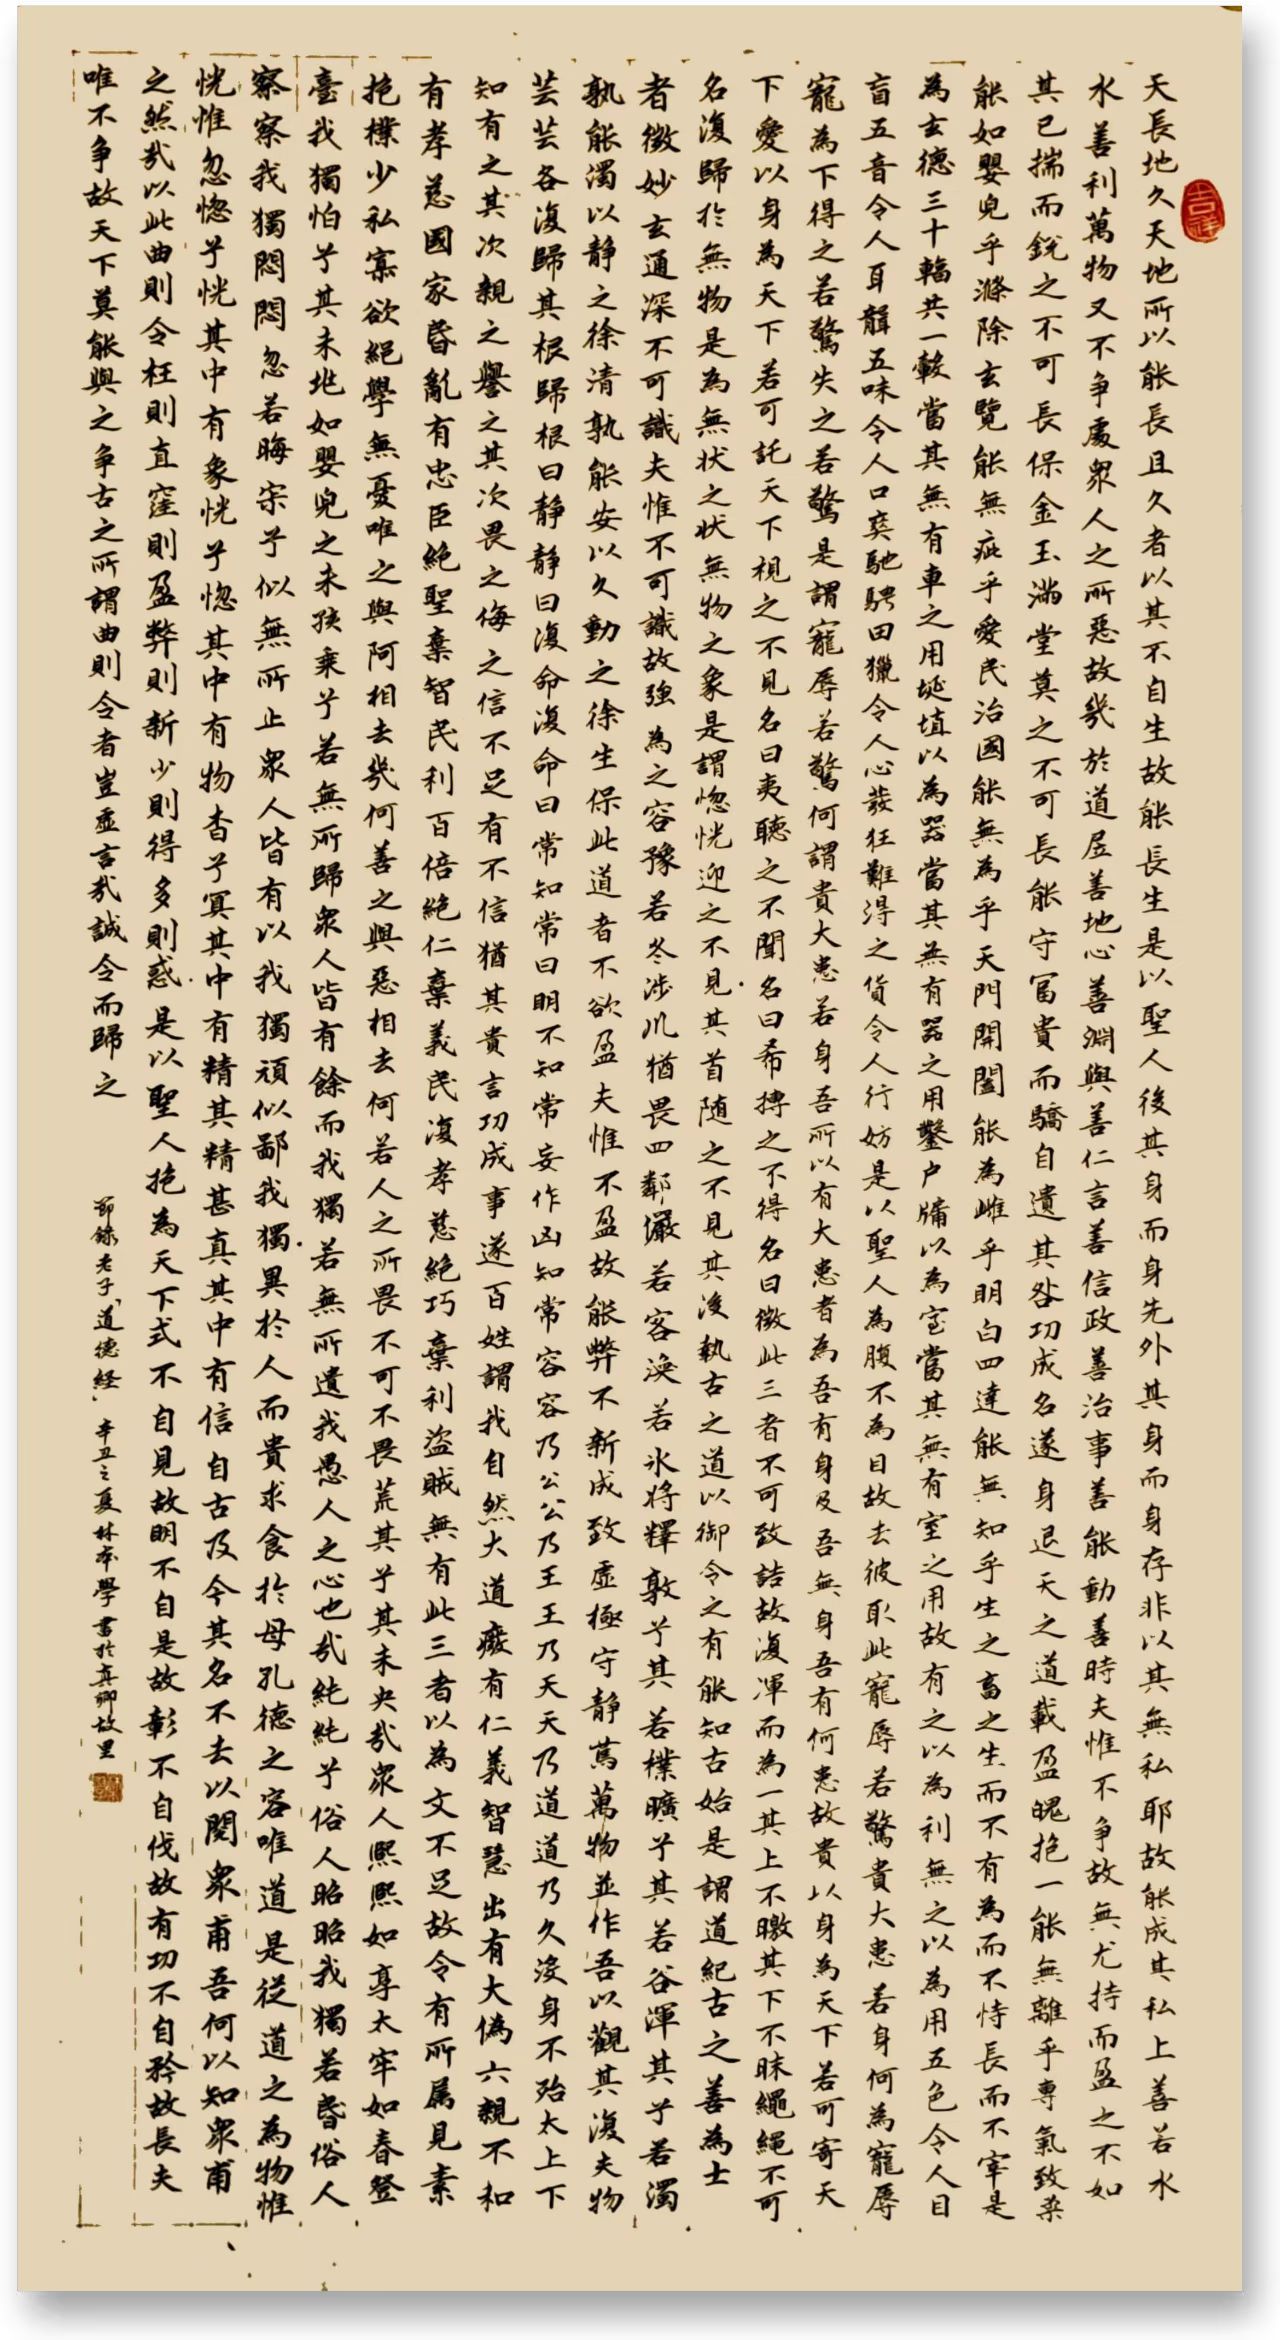 天長地久天地所以能長且久者以其不自生故能長生是以聖人後其身而身先外其身而身存非以其無私耶故能成其私上善若水
水善利萬物又不争處衆人之所惡故幾於道居善地心善淵與善仁言善信政善治事善能動善時夫惟不争故無尤持而盈之不如
其已揣而銳之不可長保金玉滿堂莫之不可長能守富貴而驕自遺其咎功成名遂身退天之道載盈魄抱一能無離乎專氣致柔
能如嬰兒乎滌除玄覽能無疵乎愛民治國能無為乎天門開闔能為雌乎明白四達能無知乎生之畜之生而不有為而不恃長而不宰是
為玄德三十輻共一轂當其無有車之用埏埴以為器當其無有器之用鑿户牖以為室當其無有室之用故有之以為利無之以為用五色令人目
盲五音令人耳聾五味令人口爽馳騁田獵令人心發狂難得之貨令人行妨是以聖人為腹不為目故去彼取此寵辱若驚貴大患若身何為寵辱
寵為下得之若驚失之若驚是謂寵辱若驚何謂貴大患若身吾所以有大患者為吾有身及吾無身吾有何患故貴以身為天下若可寄天
下愛以身為天下若可託天下視之不見名曰夷聽之不聞名曰希搏之不得名曰微此三者不可致詰故復渾而為一其上不皦其下不昧繩繩不可
名復歸於無物是為無状之状無物之象是謂惚恍迎之不見其首随之不見其後執古之道以御今之有能知古始是謂道紀古之善為士
者微妙玄通深不可識夫惟不可識故強為之容豫若冬涉川猶畏四鄰儼若客渙若冰将釋敦兮其若樸曠兮其若谷渾其兮若濁
孰能濁以静之徐清孰能安以久動之徐生保此道者不欲盈夫惟不盈故能弊不新成致虛極守静篤萬物並作吾以觀其復夫物
芸芸各復歸其根歸根曰静静曰復命復命曰常知常曰明不知常妄作凶知常容容乃公公乃王王乃天天乃道道乃久没身不殆太上下
知有之其次親之譽之其次畏之侮之信不足有不信猶其貴言功成事遂百姓謂我自然大道癈有仁義智慧出有大偽六親不和
有孝慈國家昏亂有忠臣絶聖棄智民利百倍絶仁棄義民復孝慈絶巧棄利盜賊無有此三者以為文不足故令有所属見素
抱樸少私寡欲絕學無憂唯之與阿相去幾何善之與惡相去何若人之所畏不可不畏荒其兮其未央哉衆人熙熙如享太牢如春登
臺我獨怕兮其未兆如嬰兒之未孩乘兮若無所歸衆人皆有餘而我獨若無所遺我愚人之心也哉純純兮俗人昭昭我獨若昏俗人
察察我獨悶悶忽若晦宗兮似無所止衆人皆有以我獨頑似鄙我獨異於人而貴求食於母孔德之容唯道是從道之為物惟
恍惟忽惚兮恍其中有象恍兮惚其中有物杳兮冥其中有精其精甚真其中有信自古及今其名不去以閱衆甫吾何以知衆甫
之然哉以此曲則全枉則直窪則盈弊則新少則得多則惑是以聖人抱為天下式不自見故明不自是故彰不自伐故有功不自矜故長夫
唯不争故天下莫能與之争古之所謂曲則全者豈虛言哉誠全而歸之
節錄老子「道德経」辛丑之夏林本學書於真卿故里
吉祥